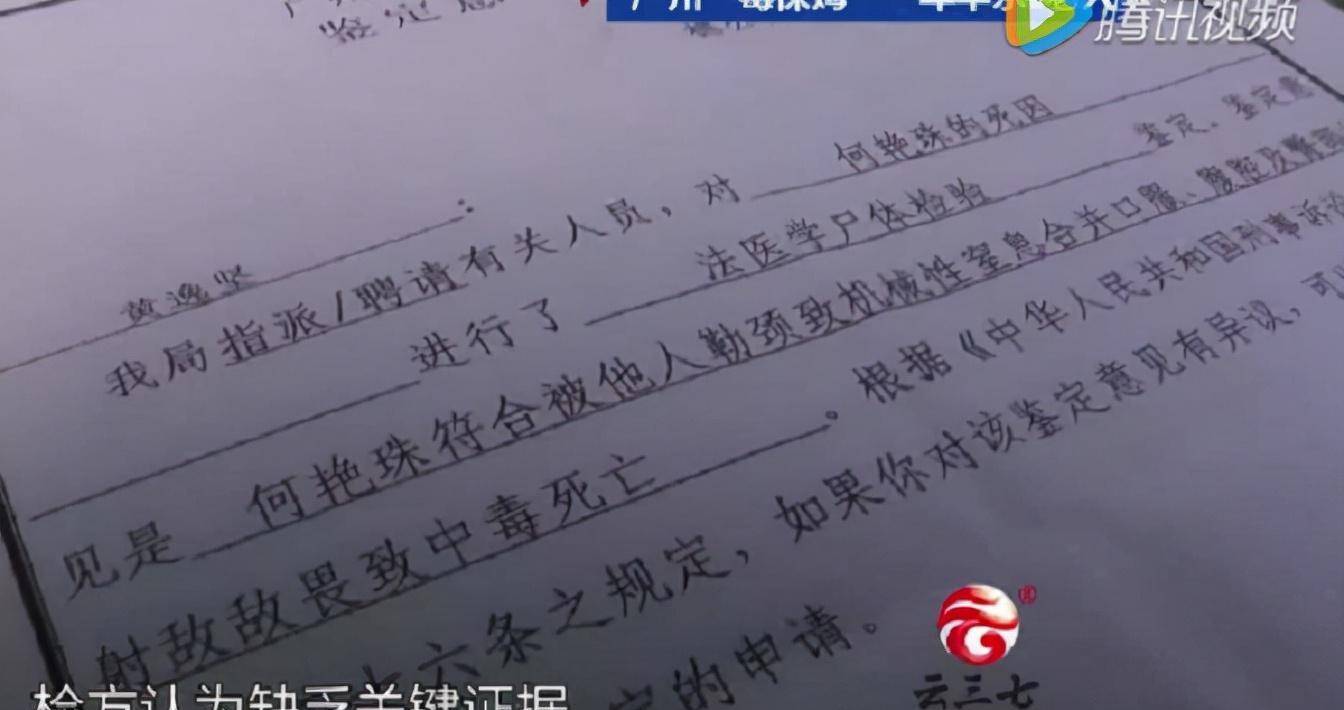 鉴定意
广州"毒保姆"
腾讯视频
黄逸坚：
我局指派/聘请有关人员，对何艳珠的死因
进行了法医学尸体检验鉴定。鉴定意
见是何艳珠符合被他人勒颈致机械性窒息合并口服、腹腔及臀部
射敌敌畏致中毒死亡。根据《中华人民共和国刑事诉讼
六条之规定，如果你对该鉴定意见有异议，可
的申请。
云三七
检方认为缺乏关键证据